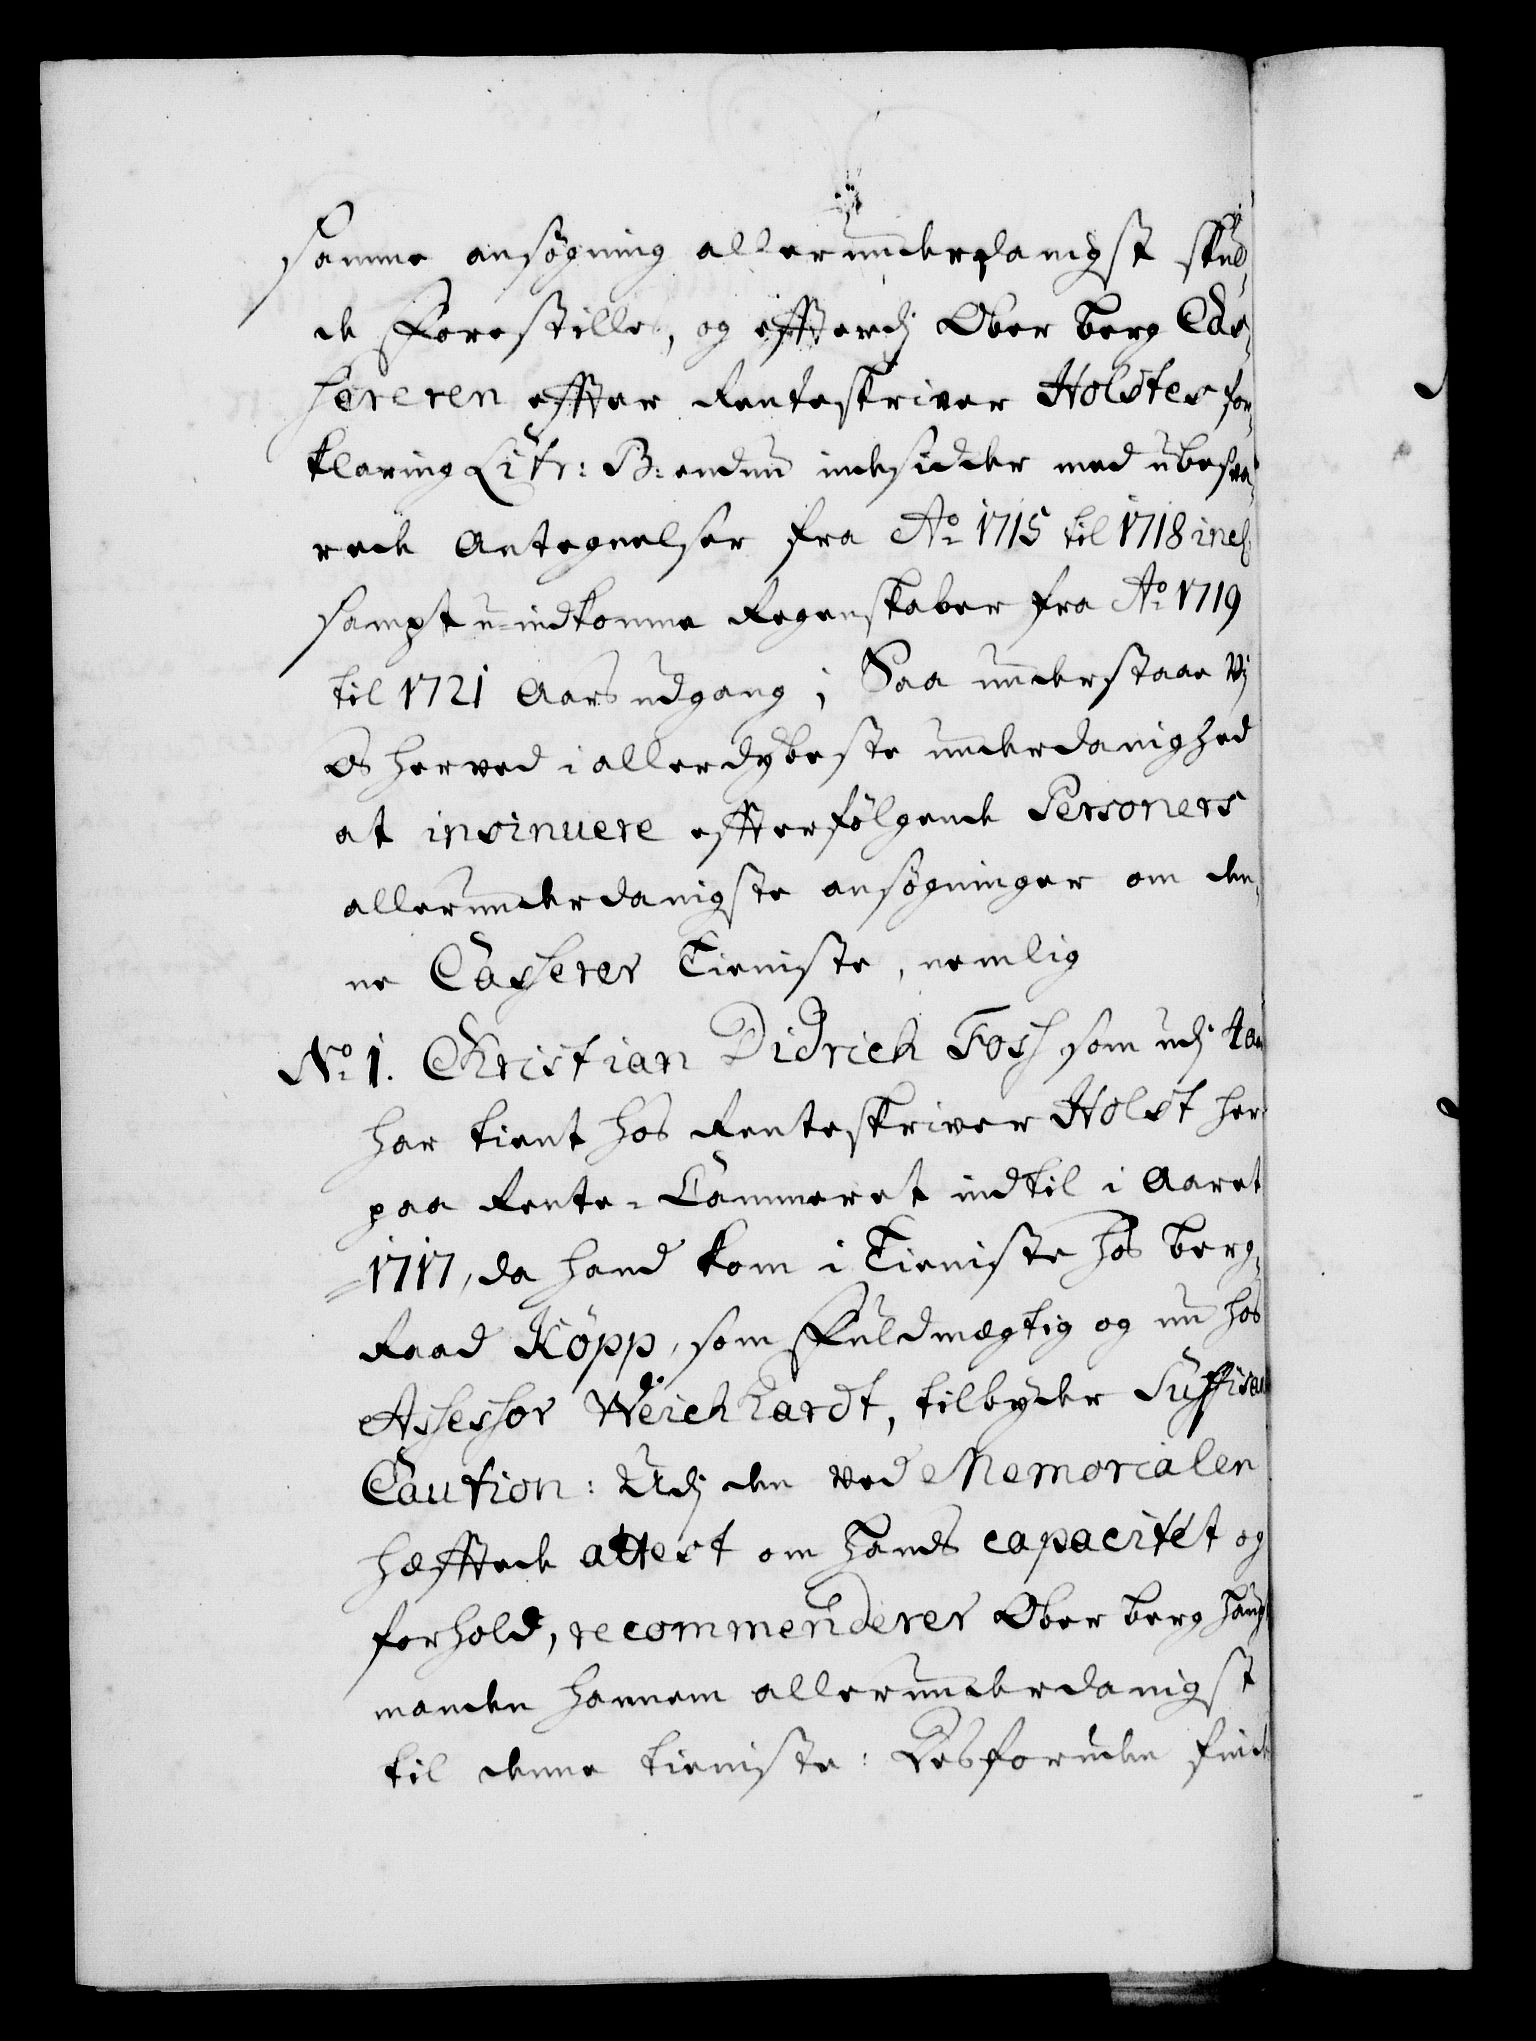 samme ansøgning allerunderdanigst skul-
de Forestilles, og effterdj Ober Berg Cas-
hereren effter Renteskriver Holstes for-
klaring Litr: B: endnu indesidder med ubesva-
rede Antegnelser fra Ao 1715 til 1718 incl.
sampt u-indkomne Regenskaber fra Ao 1719
til 1721 Aars udgang; Saa understaae Vj
os herved i allerdybeste underdanighed
at insinuere effterfølgende Personers
allerunderdanigste ansøgninger om den-
ne Casherer Tieniste, nemlig
No 1. Christian Didrich Foss som udj
har tient hos Renteskriver Holst her
paa Rente-Cammeret indtil i Aaret
1717, da hand kom i Tieniste hos Berg-
Raad Köpp, som Fuldmægtig og nu hos
Assessor Weichhardt, tilbyder Suffisant
Caution: Udj den ved Memorialen
hæfftede attest om hands capacitet og
forhold, recommenderer Ober Berg Haupt
manden hannem allerunderdanigst
til denne tieniste: Desforuden find